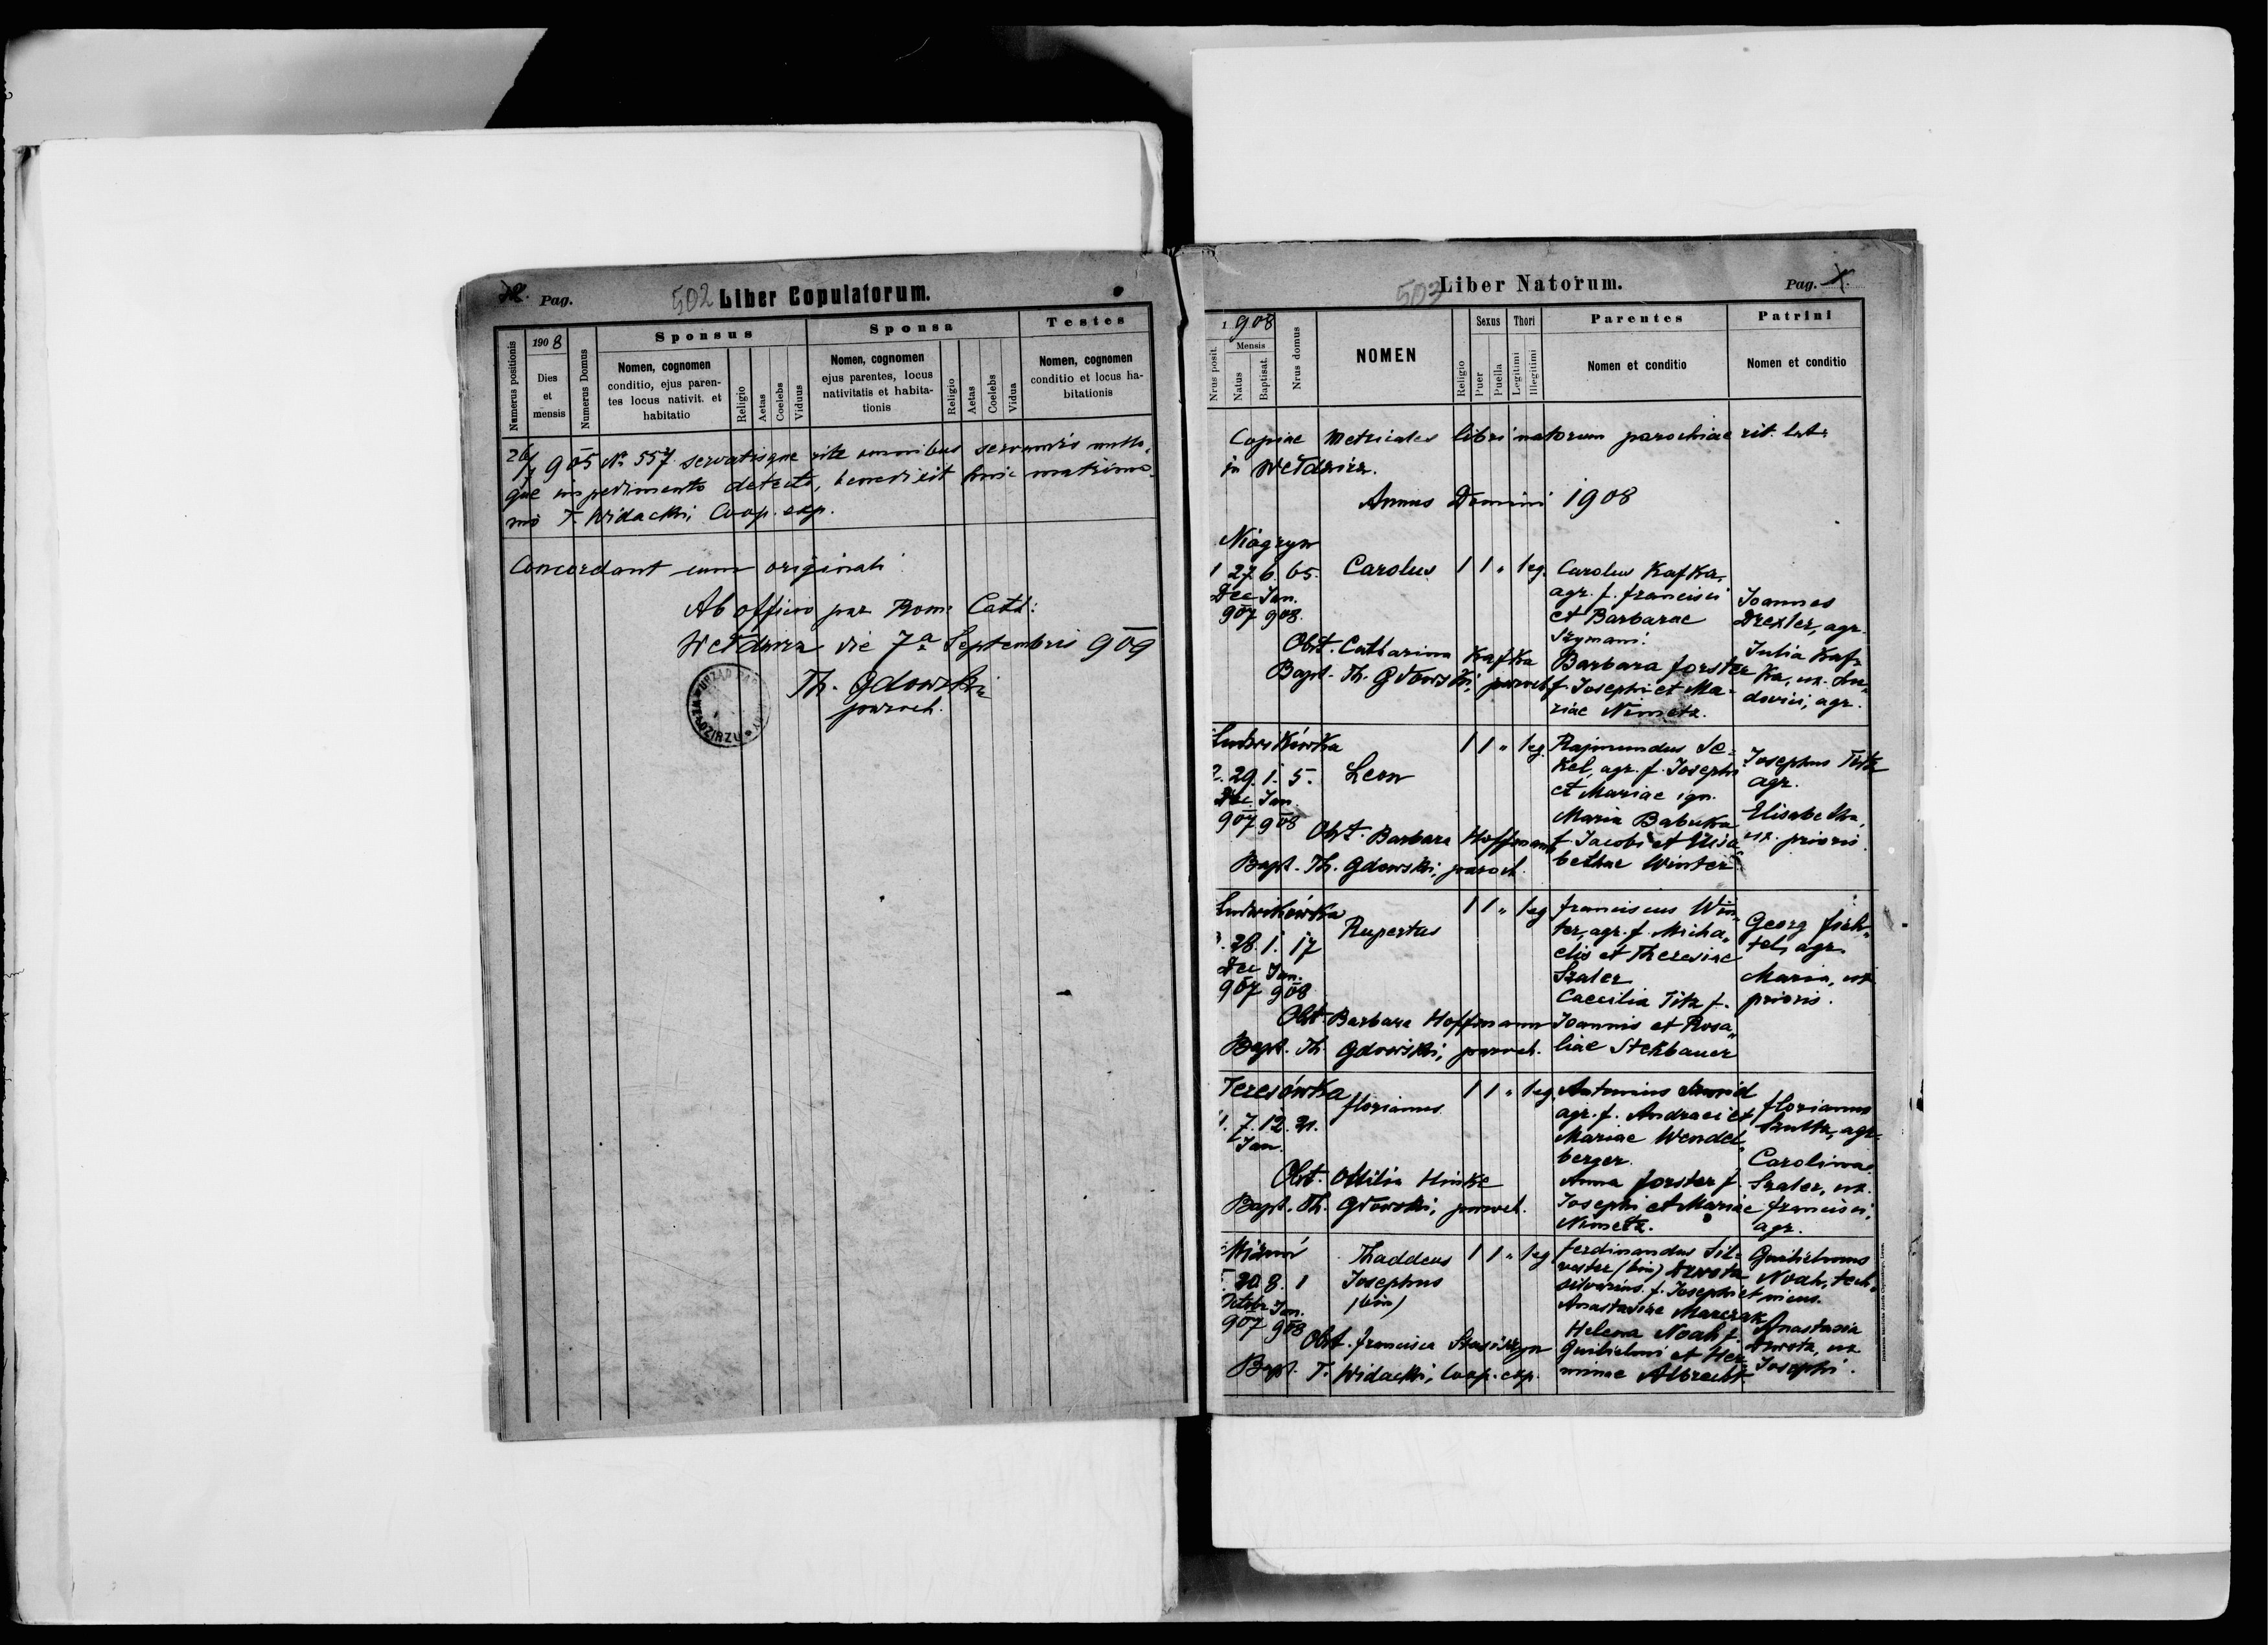 Pag.
502
Liber Copulatorum.
Numerus positionis
1908
Dies
et
mensis
Numerus Domus
Sponsus
Nomen, cognomen
conditio, ejus paren-
tes locus nativit. et
habitatio
Religio
Aetas
Coelebs
Viduus
Sponsa
Nomen, cognomen
ejus parentes, locus
nativitatis et habita-
tionis
Religio
Aetas
Coelebs
Vidua
Testes
Nomen, cognomen
conditio et locus ha-
bitationis
26/7 905 No 557. servatisque rite omnibus servandis nullo
que impedimento detecto, benedixit huic matrimo-
nio T. Widacki, Coop. exp.
Concordant cum originali
Ab officio par Rom: Cath:
Wełdzirz die 7a Septembris 909
Th. Gdowski
paroch.
URZĄD PAR
WEŁDZIRZU
503
Liber Natorum.
Pag. 1.
1908
Nrus posit.
Mensis
Natus
Baptisat.
Nrus domus
NOMEN
Religio
Sexus
Puer
Puella
Thori
Legitimi
Illegitimi
Parentes
Nomen et conditio
Patrini
Nomen et conditio
Copiae metricales libri natorum parochiae rit. lat.
in Wełdzirz.
Annus Domini 1908
Niagryn
1 27. 6. 65. Carolus 1 1 " leg.
Dec Jan.
907 908.
Obst. Catharina Kafka
Bapt. Th. Gdowski, paroch.
Carolus Kafka,
agr. f. Francisci
et Barbarae
Szymani.
Barbara Forster
f. Josephi et Ma-
riae Nimetz.
Joannes
Drexler, agr.
Julia Kaf-
ka, ux. Lu-
dovici, agr.
Ludwikówka
2. 29. 1. 5. Leon 1 1 " leg.
Dec. Jan.
907 908
Obst. Barbara Hoffmann
Bapt. Th. Gdowski, paroch.
Rajmundus Je-
kel, agr. f. Josephi
et Mariae ign.
Maria Babuka
f. Jacobi et Elisa-
bethae Winter
Josephus Titz
agr.
Elisabetha,
ux. prioris.
Ludwikówka
28. 1. 17 Rupertus 1 1 " leg
Dec Jan.
907 908
Obst. Barbara Hoffmann
Bapt. Th. Gdowski, paroch.
Franciscus Win-
ter, agr. f. Micha-
elis et Theresiae
Szaler
Caecilia Titz f.
Joannis et Rosa-
liae Stekbauer
Georg Fich-
tel, agr.
Maria, ux
prioris.
Teresówka
7. 12. 21. Florianus 1 1 " leg
Jan.
Obst. Ottilia Hinke
Bapt. Th. Gdowski, paroch.
Antonius
agr. f. Andreae et
Mariae Wendel-
berger.
Anna Forster f.
Josephi et Mariae
Nimetz.
Florianus
agr.
Carolina
Szaler, ux.
Francisci,
agr.
Mizuń
30. 8. 1 Thaddeus 1 1 " leg
Josephus
(bin)
Octobr Jan.
907 908
Obst. Francisca
Bapt. T. Widacki, Coop. exp.
Ferdinandus Sil-
vester (bin)
silvarius. f. Josephi et
Anastasiae Marczak
Helena Noah f.
Guilielmi et Her-
minae Albrecht
Guilielmus
Noah, tech-
nicus.
Anastasia
ux
Josephi.